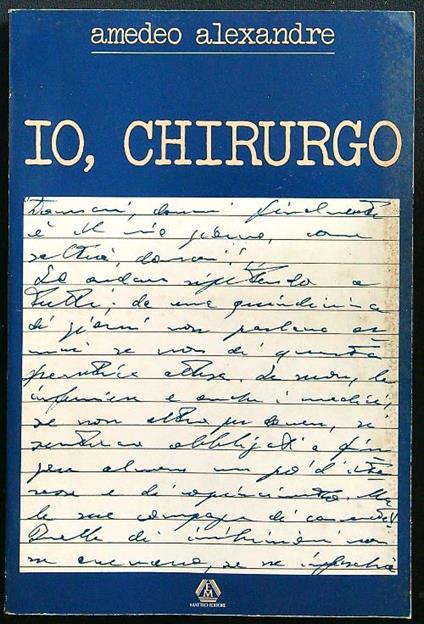 amedeo alexandre
IO, CHIRURGO
Domani, domani finalmente
è il mio giorno, come
domani!
Lo andava ripetendo a
tutti; da una quindicina
di giorni non parlava
mai se non di questa
attesa. Le suore, le
infermiere e anche i medici,
se non altro per dovere, se
sentivano obbligati a fin
gere almeno un po' d'inte
resse e di. Ma
le sue compagne di
Quelle di non
se, se ne
MATTEO EDITORE